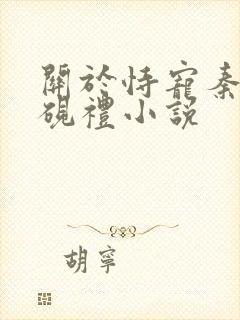 關於恃寵秦
硯禮小說
胡寧